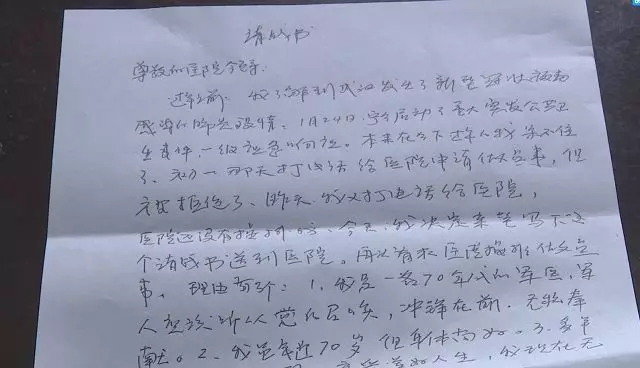 请战书
尊敬的医院领导:
过年前,我了解到武汉发生了新型冠状病毒
感染的肺炎疫情。1月24日,宁启动了重大突发公共卫
生事件一级应急响应。本来在乡下过年的我坐不住
了,初一那天打电话给医院申请做点事,但
被拒绝了。昨天,我又打电话给医院,
医院还没有接纳。今天,我决定来笔写下这
个请战书送到医院。再次请求医院接纳做点
事。理由有: 1、我是一名70年代的军医,军
人应该听从党的召唤,冲锋在前、无私奉
献。2、我虽年近70岁但身体尚好。3、多年
人生,我现在无